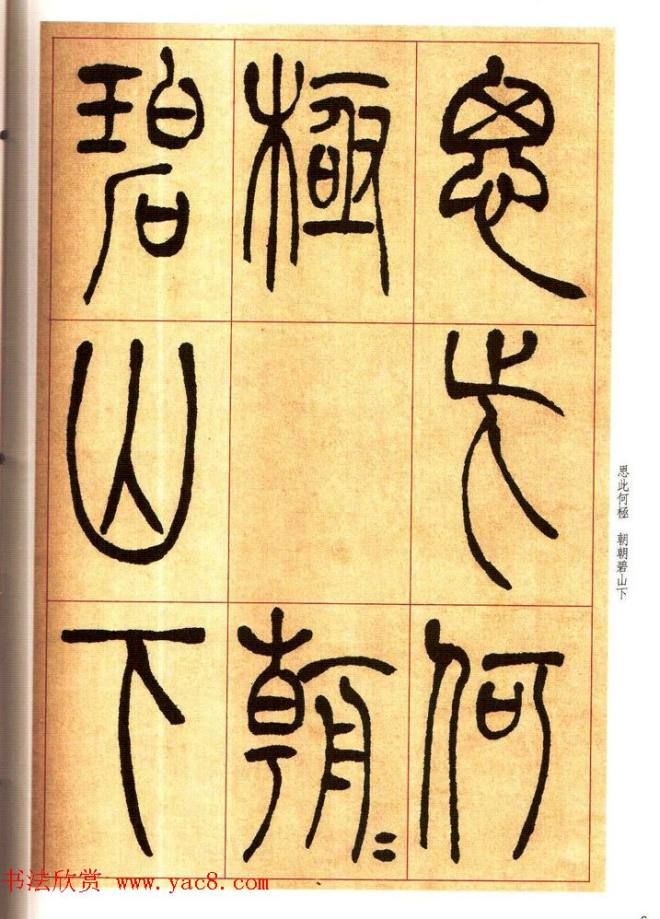 思此何
極
朝〻
碧山下
思此何極 朝朝碧山下
书法欣赏 www.yac8.com